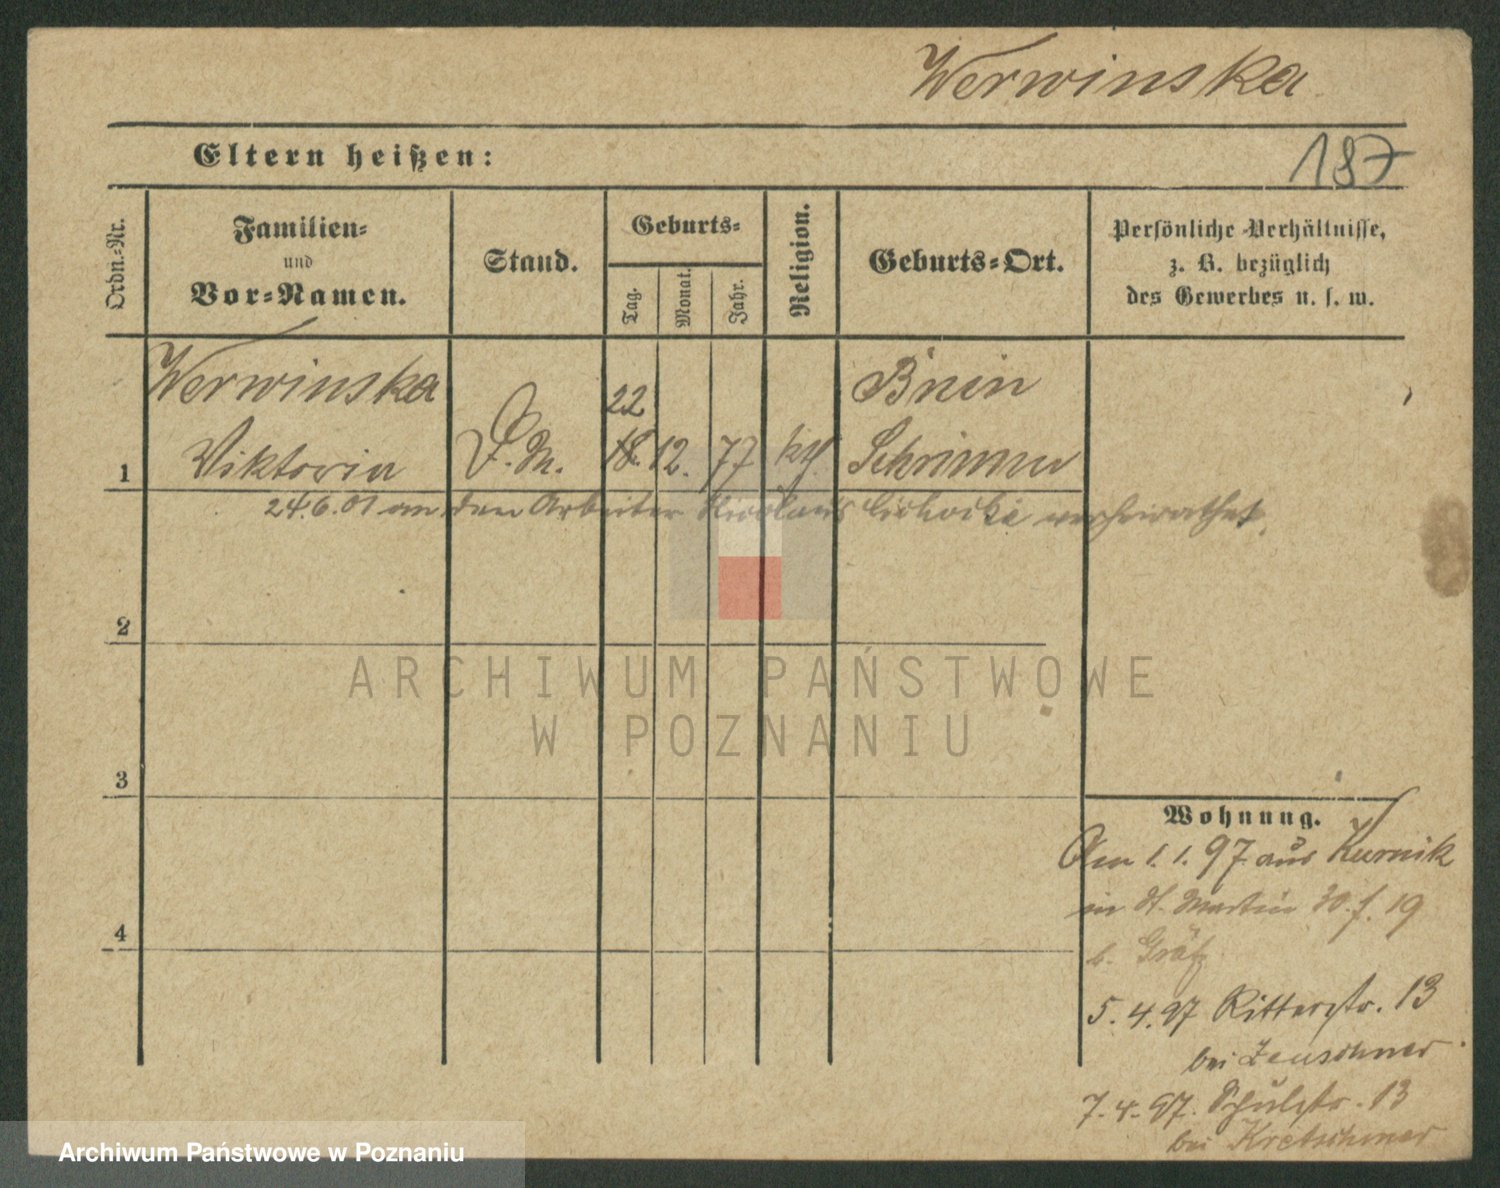 Werwinska
Eltern heißen:
187
Ordn.-Nr.
Familien-
und
Vor-Namen.
Stand.
Geburts-
Tag.
Monat.
Jahr.
Religion.
Geburts-Ort.
Persönliche Verhältnisse,
z. B. bezüglich
des Gewerbes u. s. w.
Werwinska
Bnin
22
1 Viktoria D. M. 18. 12. 77 kth. Schrimm
24.6.01 an den Arbeiter verheirathet.
2
3
4
Wohnung.
Am 1.1.97 aus Kurnik
in St. Martin 19
b. Grätz
5.4.97 Ritterstr. 13
bei Zeuschner
7.4.97. Schulstr. 13
bei Kretschmer
ARCHIWUM PAŃSTWOWE
W POZNANIU
Archiwum Państwowe w Poznaniu